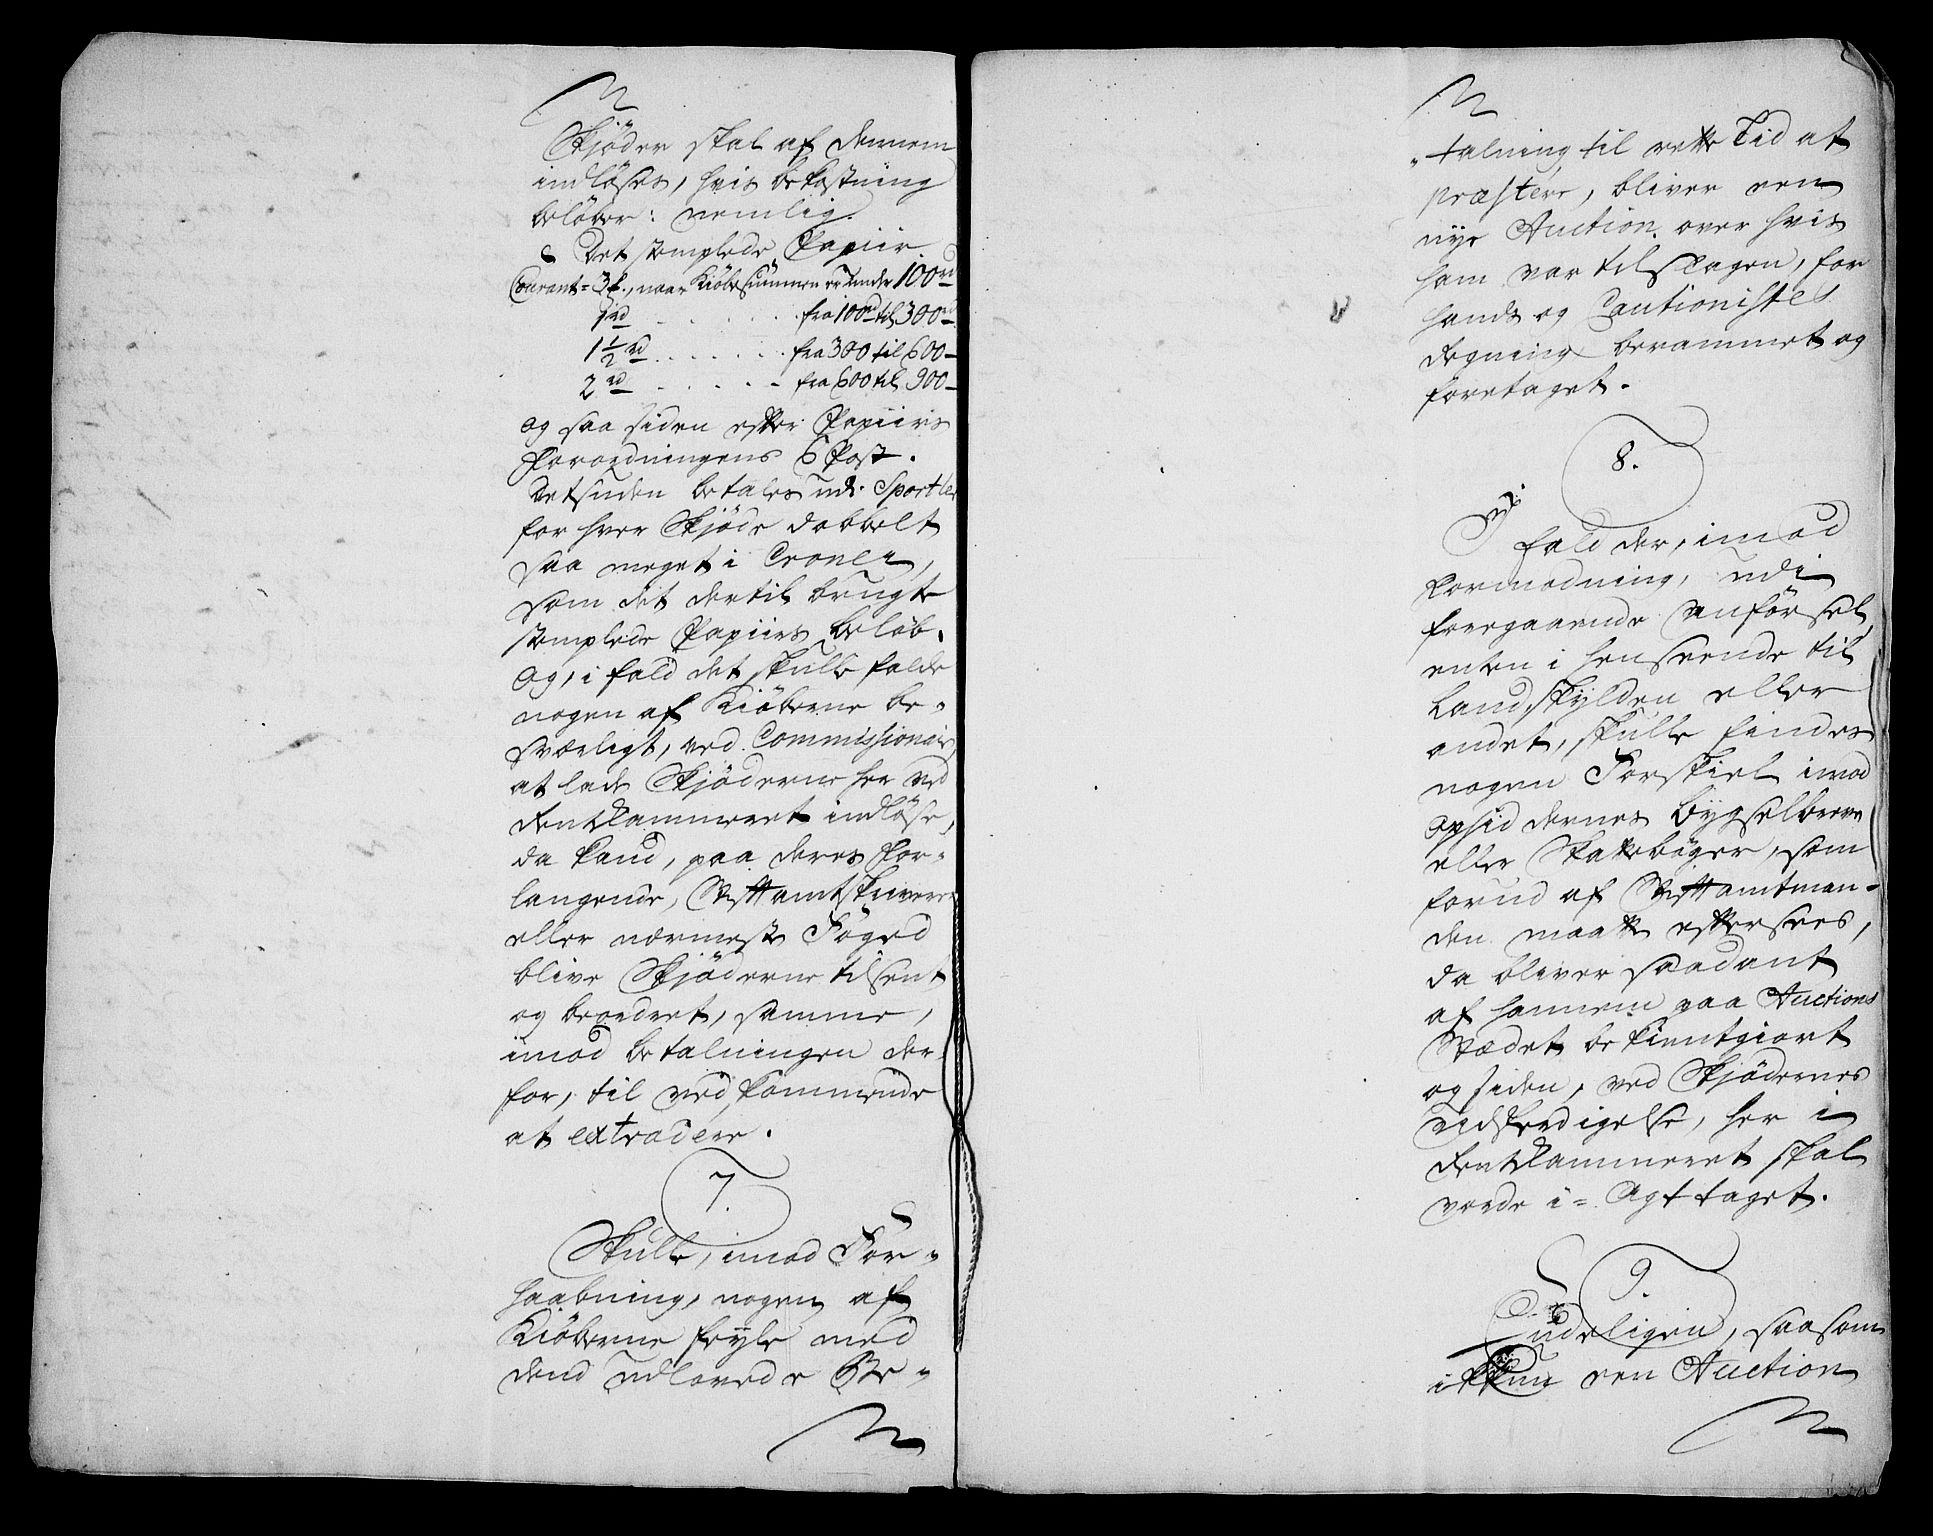 Skjöder skal af dennem
indlöses, hvis bekostning
belöber: nemlig.
Det stemplede Papiir
Courant = 3 ℔., naar Kiöbesummen er under 100 rd
1 rd . . . . . fra 100 rd til 300 rd
1 1/2 rd . . . . . . fra 300 til 600 —
2 rd . . . . . fra 600 til 900 —
og saa siden efter Papiirs
Forordningens 6 Post.
Desuden betales udi Sportler
for hver Skjöde dobbelt
saa meget i Croner,
som det dertil brugte
stemplede Papiirs belöb.
Og, i fald det skulle falde
nogen af Kiöberne be-
sværligt, ved Commissionair
at lade Skjöderne her ved
Rentekammeret indlöse,
da kand, paa deres For-
langende, Stiftamtskriveren
eller nærmeste Foged
blive Skjöderne tilsent
og beordret, samme,
imod betalningen der-
for, til vedkommende
at extradere.
7.
Skulle, imod For-
haabning, nogen af
Kiöberne feyle med
dend udlovede Be-
talning til rette Tid at
præstere, bliver een
nye Auction over hvis
ham var tilslagen, for
hands og Cautionistes
Regning berammet og
foretaget.
8.
I fald der, imod
Formodning, udi
foregaaende Anförsel,
enten i henseende til
Landskylden eller
andet, skulle findes
nogen Forskiel imod
Opsiddernes bygselbreve
eller Skattebøger, som
forud af Stiftamtman-
den maatte eftersees,
da bliver saadant
af hannem paa Auctions
Stædet bekientgiort
og siden, ved Skjödernes
Udfærdigelse, her i
Rentekammeret skal
vorde i= Agt taget.
9.
Endeligen, saasom
ikkun een Auction